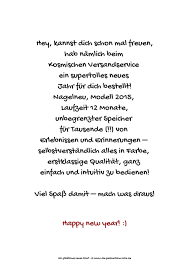 Hey, kannst dich schon mal freuen,
hab nämlich beim
Kosmischen Versandservice
ein supertolles neues
Jahr für dich bestellt!
Nagelneu, Modell 2015,
Laufzeit 12 Monate,
unbegrenzter Speicher
für Tausende (!!!) von
Erlebnissen und Erinnerungen –
selbstverständlich alles in Farbe,
erstklassige Qualität, ganz
einfach und intuitiv zu bedienen!
Viel Spaß damit – mach was draus!
Happy new year! :)